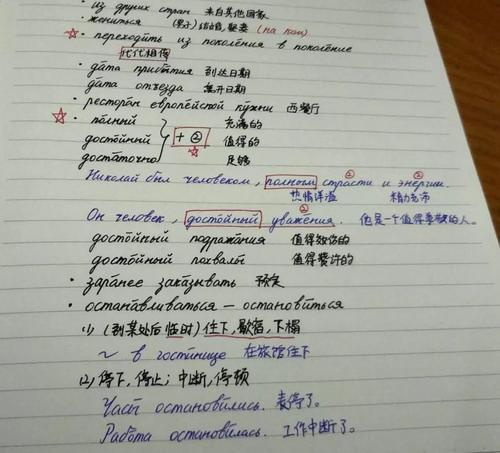 · из других стран 来自其他国家
· жениться (男子)结婚,娶妻 (на ком)
☆· переходить из поколения в поколение
代代相传
· дата прибытия 到达日期
дата отъезда 离开日期
· ресторан европейской кухни 西餐厅
☆· полный 充满的
достойный + ② 值得的
☆
достаточно 足够
Николай был человеком, полным страсти и энергии.
② ②
热情洋溢 精力充沛
②
Он человек, достойный уважения. 他是一个值得尊敬的人。
достойный подражания 值得效仿的
достойный похвалы 值得赞许的
· заранее заказывать 预定
· останавливаться — остановиться
(1) (到某处后临时)住下,歇宿,下榻
~ в гостинице 在旅馆住下
(2) 停下,停止;中断,停顿
Часы остановились. 表停了。
Работа остановилась. 工作中断了。